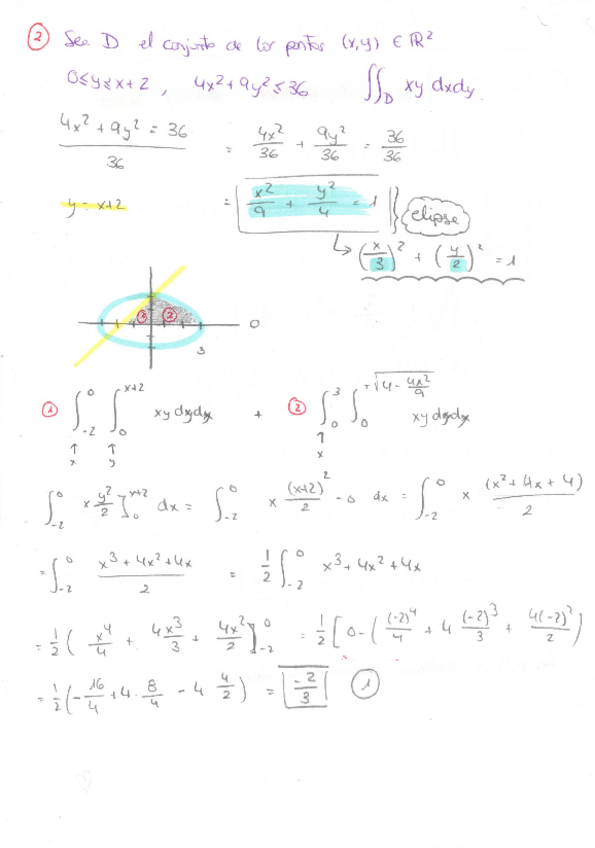 ② Sea D el conjunto de los puntos (x,y) ∈ ℝ²
0≤y≤x+2, 4x²+9y²≤36 ∬_D xy dxdy.
(4x²+9y² = 36)/36 = 4x²/36 + 9y²/36 = 36/36
y = x+2 = x²/9 + y²/4 = 1 elipse
↳ (x/3)² + (y/2)² = 1
① ② 0
3
① ∫_{-2}^{0} ∫_{0}^{x+2} xy dydx + ② ∫_{0}^{3} ∫_{0}^{+√(4 - 4x²/9)} xy dydx
↑ ↑ ↑
x y x
∫_{-2}^{0} x y²/2 ]_{0}^{x+2} dx = ∫_{-2}^{0} x (x+2)²/2 - 0 dx = ∫_{-2}^{0} x (x²+4x+4)/2
= ∫_{-2}^{0} (x³+4x²+4x)/2 = 1/2 ∫_{-2}^{0} x³+4x²+4x
= 1/2 ( x⁴/4 + 4x³/3 + 4x²/2 ]_{-2}^{0} = 1/2 [ 0 - ( (-2)⁴/4 + 4 (-2)³/3 + 4(-2)²/2 )
= 1/2 ( -16/4 + 4 · 8/4 - 4 4/2 ) = -2/3 ①